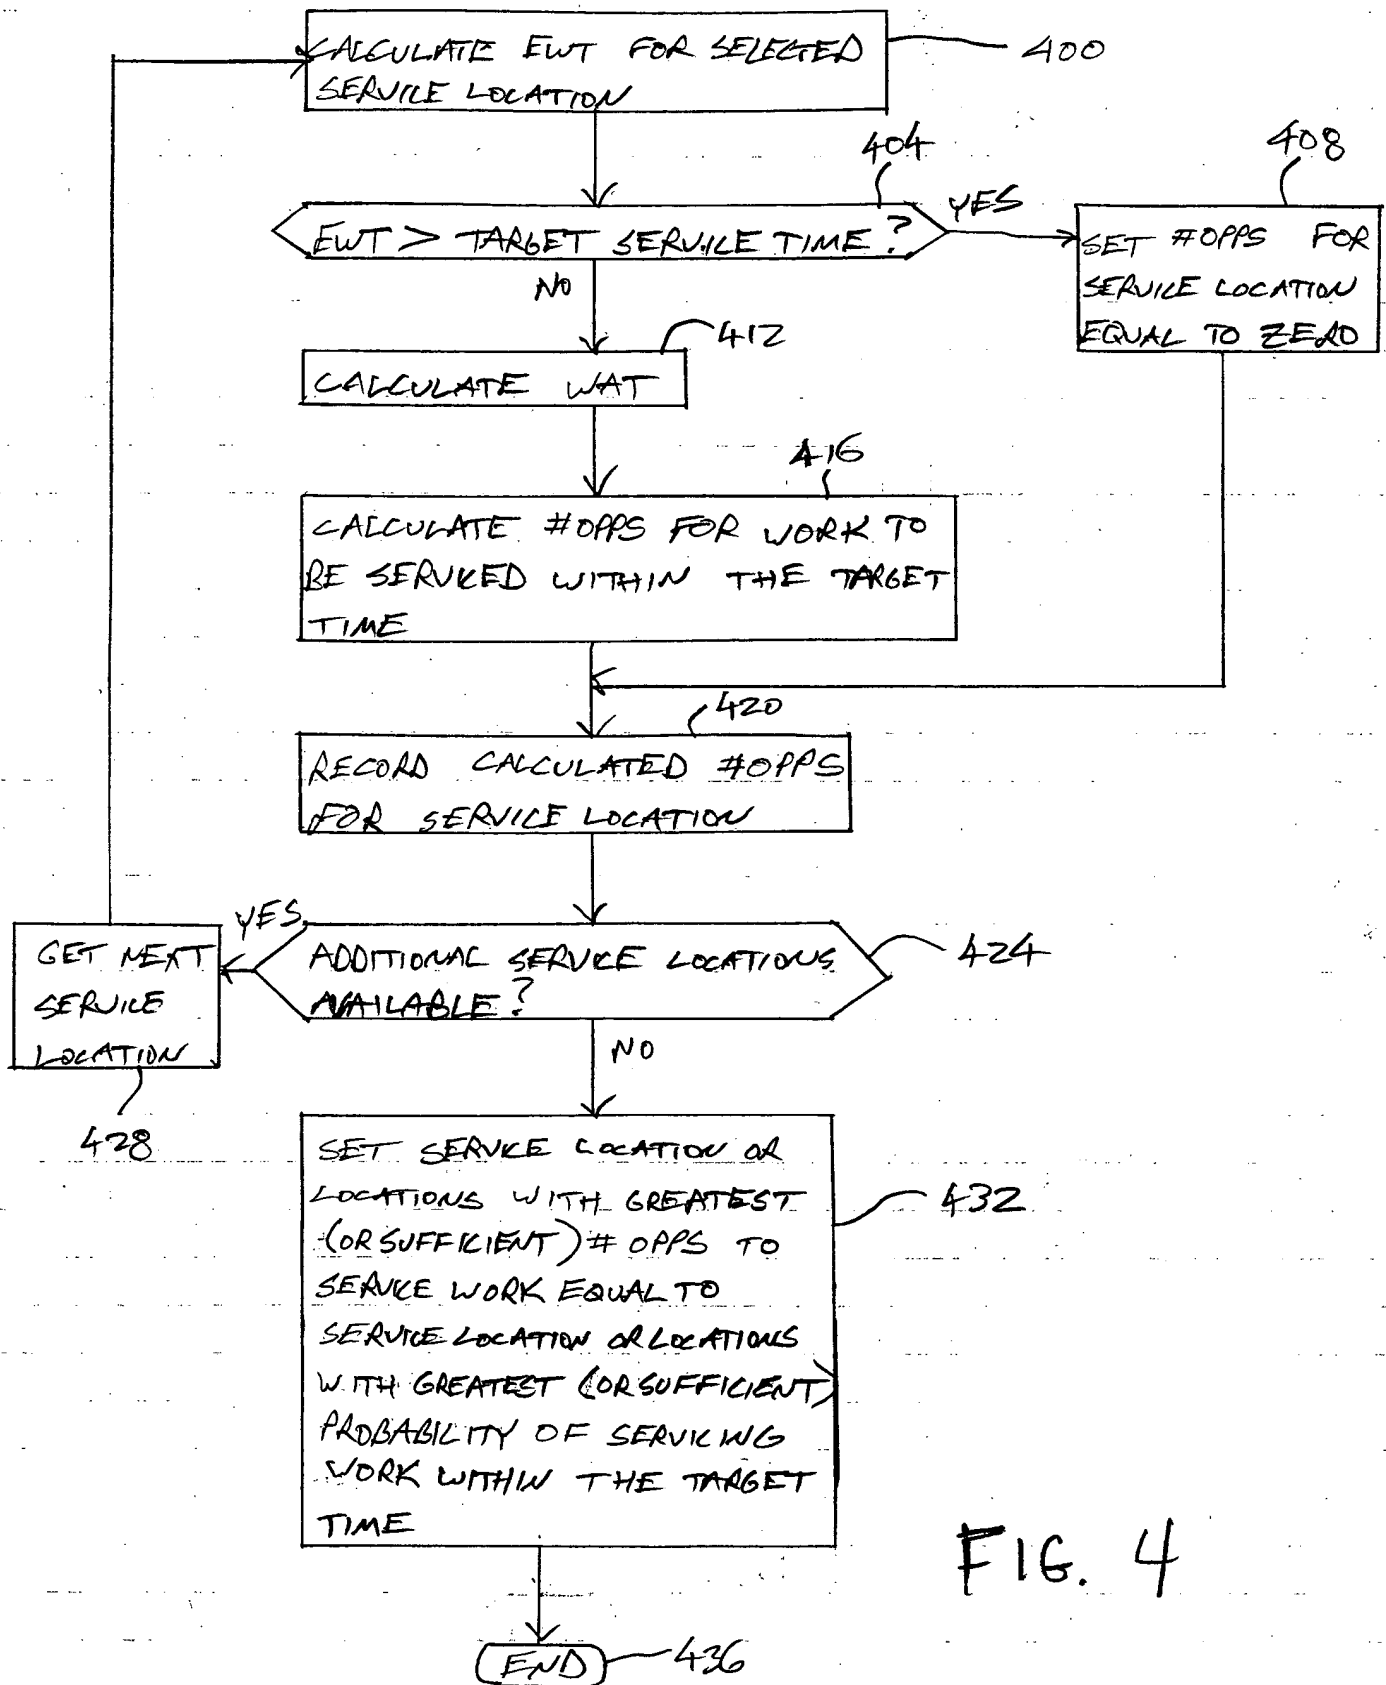 CALCULATE EWT FOR SELECTED
SERVICE LOCATION
400
404
EWT > TARGET SERVICE TIME?
YES
408
SET #OPPS FOR
SERVICE LOCATION
EQUAL TO ZERO
NO
412
CALCULATE WAT
416
CALCULATE #OPPS FOR WORK TO
BE SERVICED WITHIN THE TARGET
TIME
420
RECORD CALCULATED #OPPS
FOR SERVICE LOCATION
YES
ADDITIONAL SERVICE LOCATIONS
AVAILABLE?
424
GET NEXT
SERVICE
LOCATION
428
NO
SET SERVICE LOCATION OR
LOCATIONS WITH GREATEST
(OR SUFFICIENT) # OPPS TO
SERVICE WORK EQUAL TO
SERVICE LOCATION OR LOCATIONS
WITH GREATEST (OR SUFFICIENT)
PROBABILITY OF SERVICING
WORK WITHIN THE TARGET
TIME
432
END
436
FIG. 4